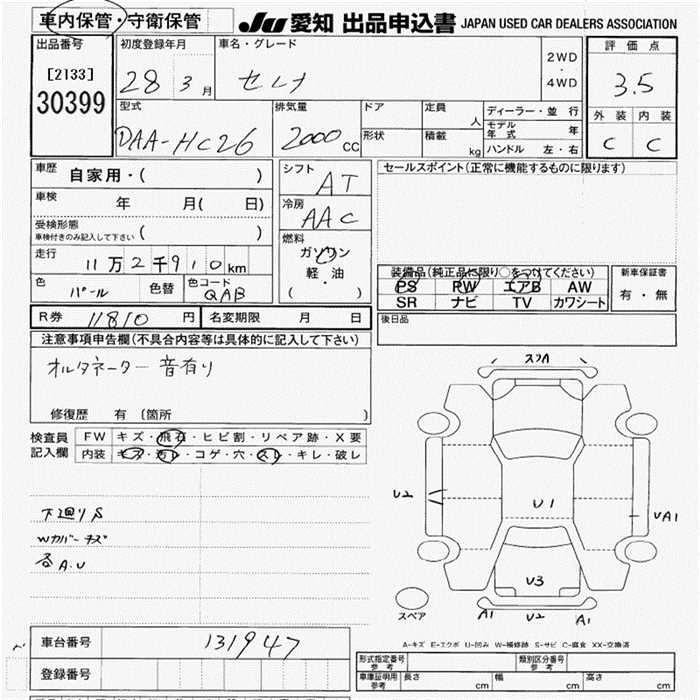 車内保管・守衛保管 JU 愛知 出品申込書 JAPAN USED CAR DEALERS ASSOCIATION
出品番号 初度登録年月 車名・グレード 2WD ・ 4WD 評価点
[2133] 28 3月 セレナ 3.5
30399
型式 排気量 ドア 定員 人 ディーラー・並行 外装 内装
DAA-HC26 2000cc 形状 積載 kg モデル年式 年 C C
ハンドル 左・右
車歴 自家用・( ) シフト AT セールスポイント(正常に機能するものに限ります)
車検 年 月( 日) 冷房 AAC
受検形態 車検付きのみ記入して下さい ( ) 燃料 ガソリン
走行 11万2千910km 軽・油 装備品(純正品に限り○をつけてください) 新車保証書
色 パール 色替 色コード QAB ( ・ ) PS PW エアB AW 有・無
SR ナビ TV カワシート
R券 11810円 名変期限 月 日 後日品
注意事項申告欄(不具合内容等は具体的に記入して下さい)
オルタネーター音有り
修復歴 有 (箇所 )
検査員 FW キズ・飛石・ヒビ割・リペア跡・X要
記入欄 内装 キズ・汚レ・コゲ・穴・スレ・キレ・破レ
下廻りS
Wカバーキズ
各A.U
スペア
U2 U1 UA1
U3
A1 U2 A1
A-キズ E-エクボ U-凹み W-補修跡 S-サビ C-腐食 XX-交換済
車台番号 131947
登録番号
形式指定番号 参考 類別区分番号 参考
車庫証明用 参考 長さ cm 幅 cm 高さ cm